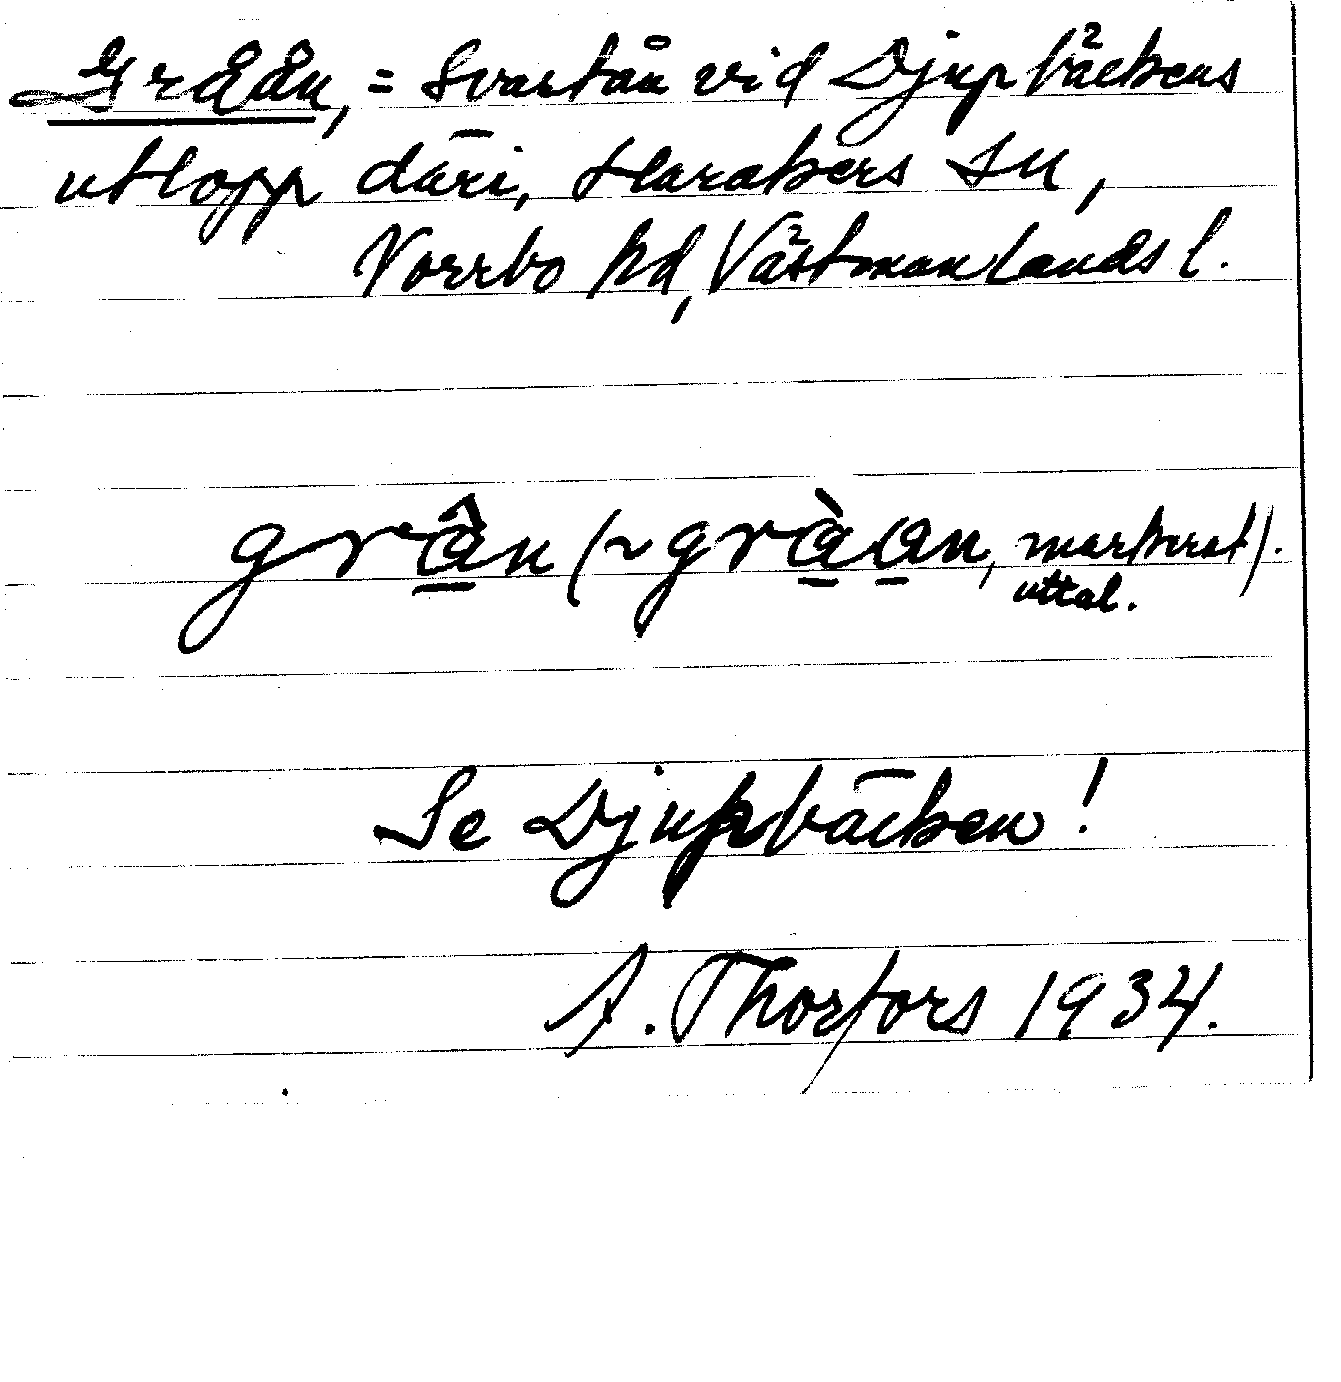 Gråån, = Svartån vid Djupbäckens
utlopp däri, Harakers sn,
Norrbo hd, Västmanlands l.
grâ̱n (~ grà̱a̱n, markerat).
uttal.
Se Djupbäcken!
A. Thorfors 1934.